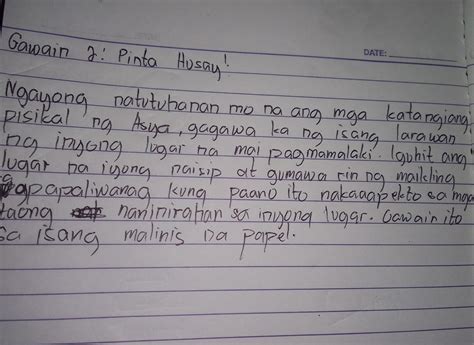 Gawain 2: Pinta Husay!
DATE:
Ngayong natutuhanan mo na ang mga katangiang
pisikal ng Asya, gagawa ka ng isang larawan
ng inyong lugar na mai pagmamalaki. Iguhit ang
lugar na iyong naisip at gumawa rin ng maikling
pagpapaliwanag kung paano ito nakaaapekto sa mga
taong naninirahan sa inyong lugar. Gawain ito
sa isang malinis na papel.